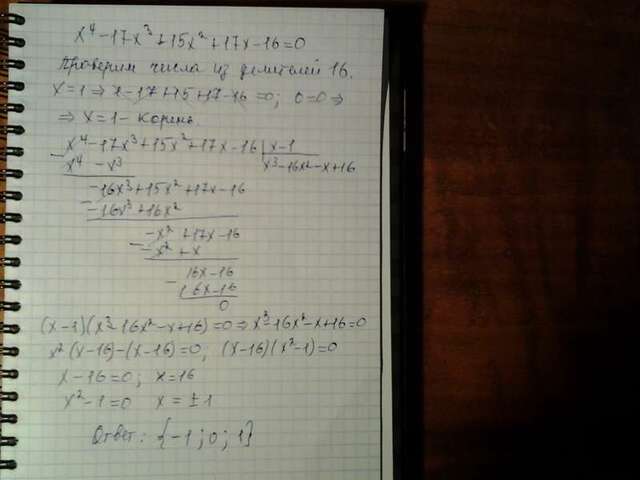 x⁴-17x³+15x²+17x-16=0
Проверим числа из делителей 16.
x=1 ⇒ 1-17+15+17-16=0; 0=0 ⇒
⇒ x=1- корень.
x⁴-17x³+15x²+17x-16 | x-1
x⁴ -x³ x³-16x²-x+16
-16x³+15x²+17x-16
-16x³+16x²
-x²+17x-16
-x²+x
16x-16
16x-16
0
(x-1)(x³-16x²-x+16)=0 ⇒ x³-16x²-x+16=0
x²(x-16)-(x-16)=0; (x-16)(x²-1)=0
x-16=0; x=16
x²-1=0 x=±1
Ответ: {-1; 0; 1}